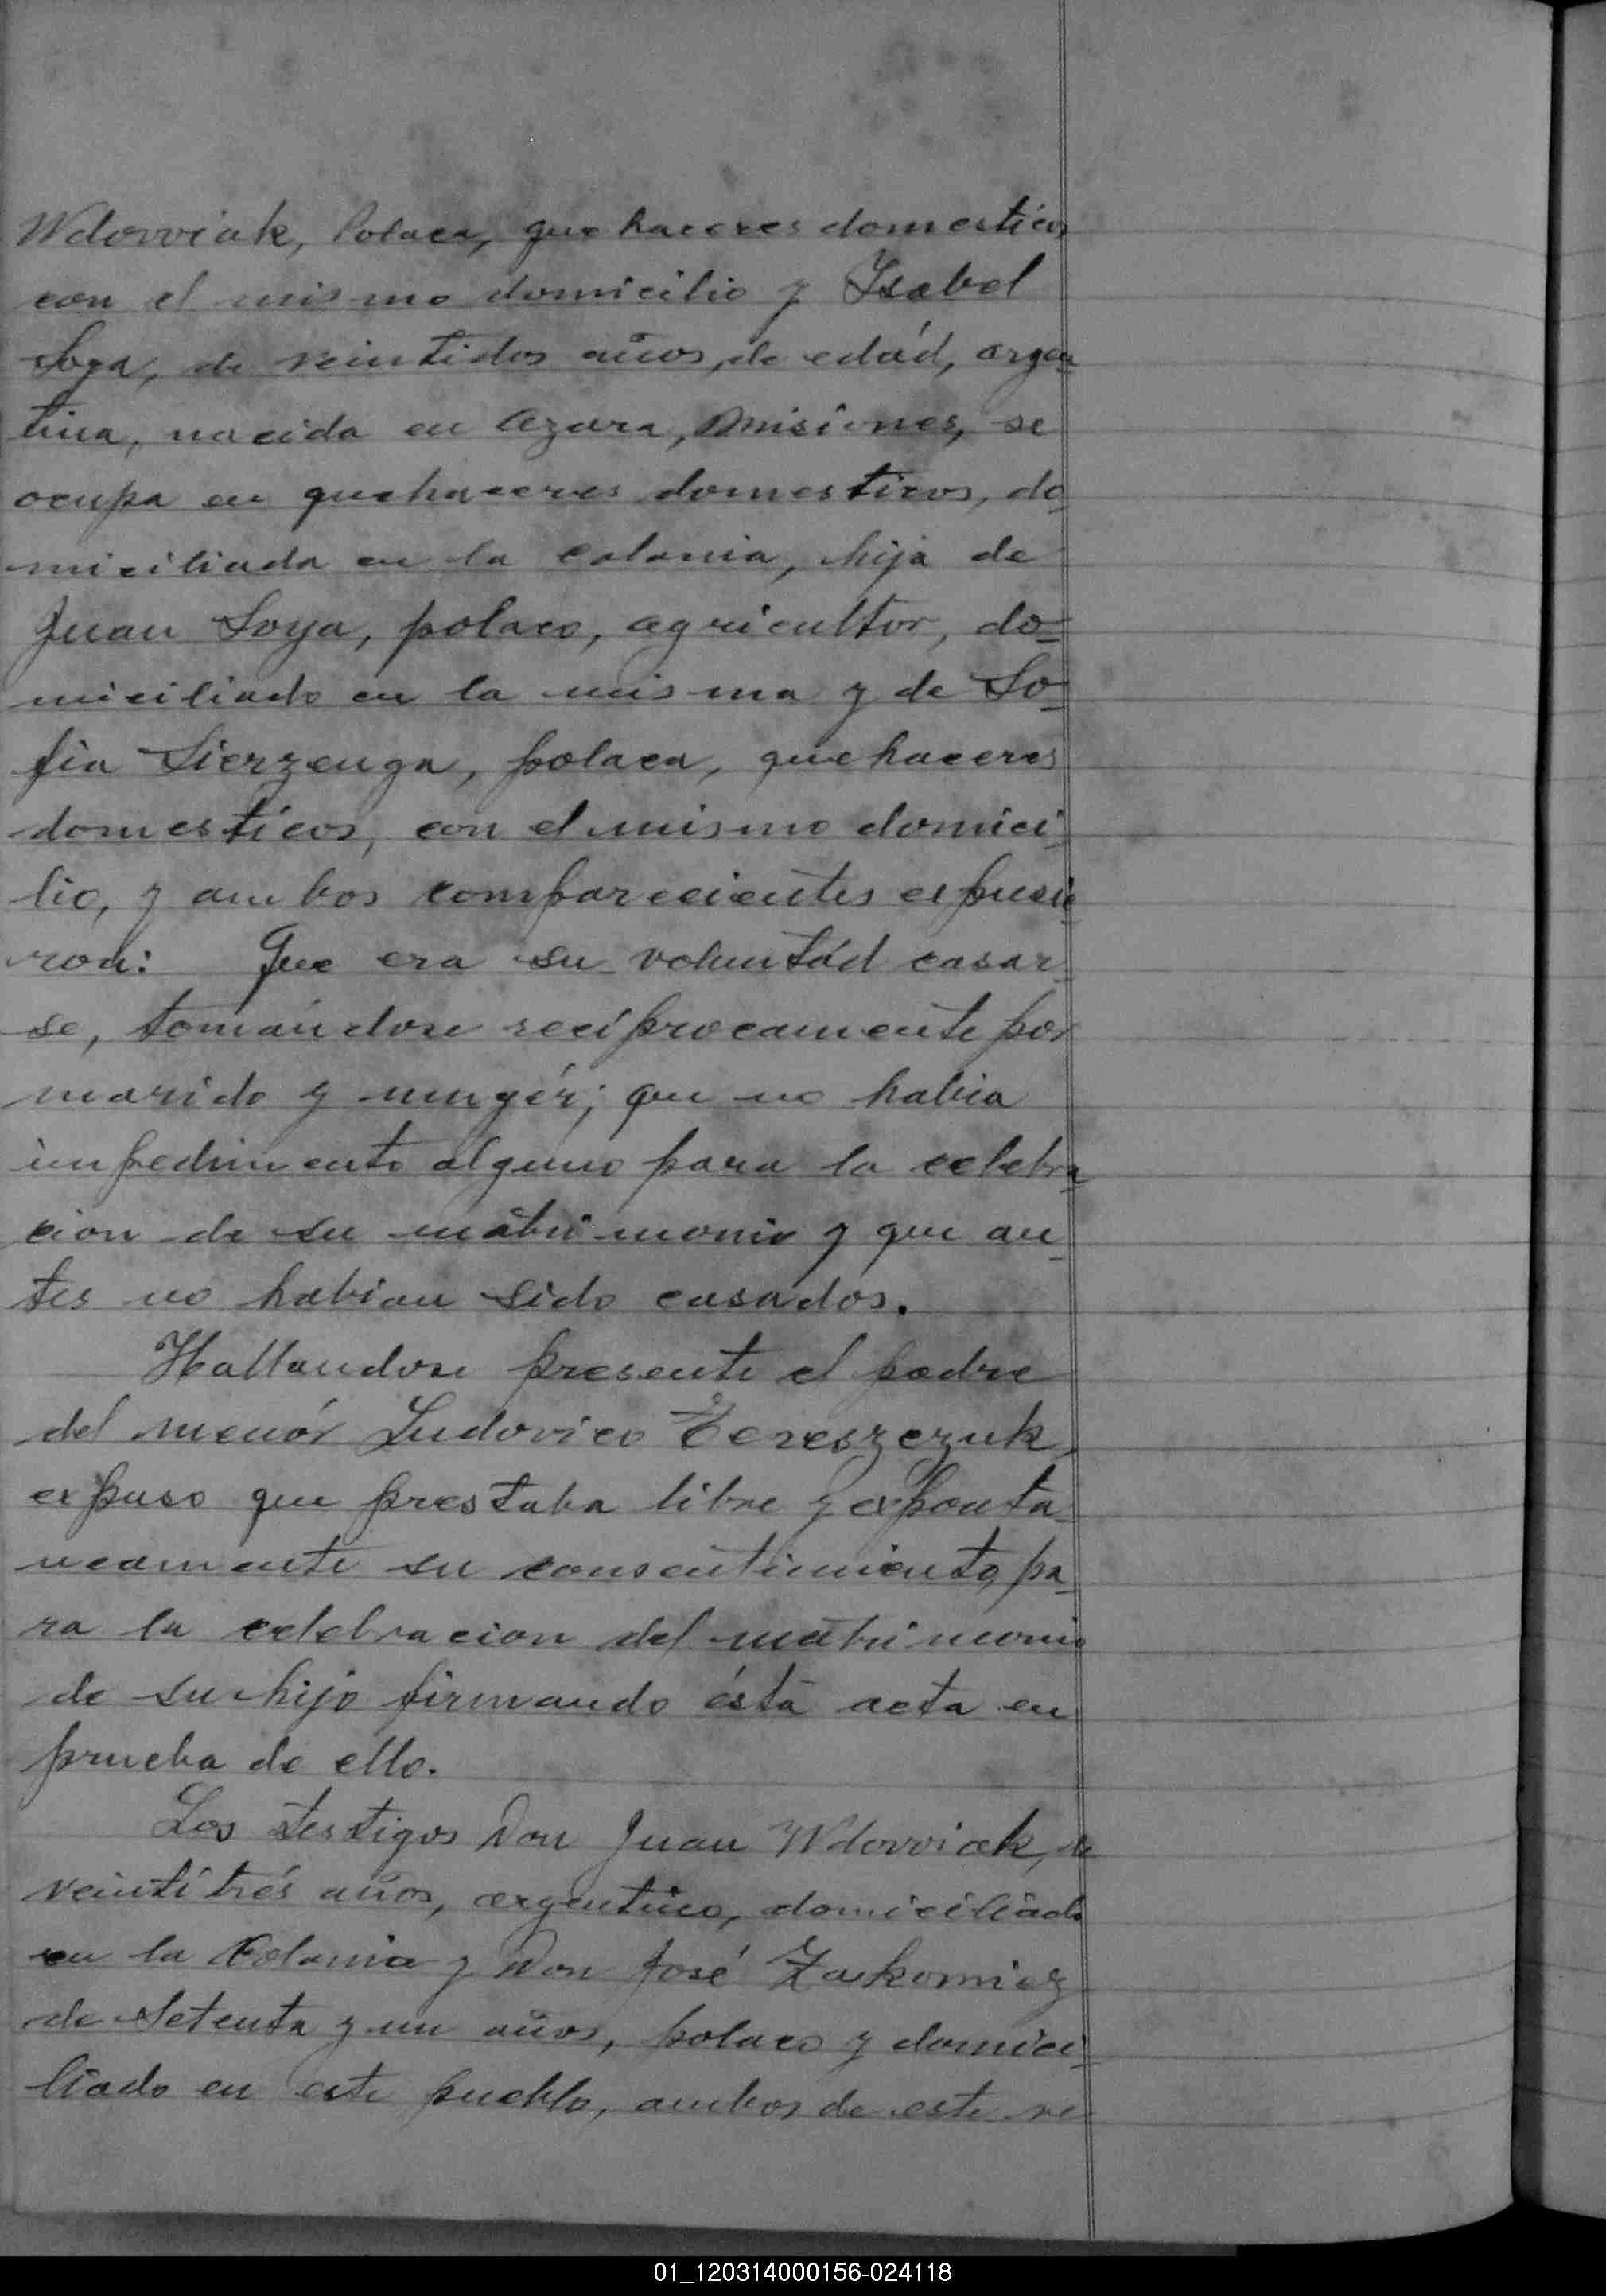 Wdowiak, Polaca, quehaceres domesticos
con el mismo domicilio y Ysabel
Soya, de veintidos años, de edád, argen-
tina, nacida en Azara, Misiones, se
ocupa en quehaceres domesticos, do-
miciliada en la colonia, hija de
Juan Soya, polaco, agricultor, do-
miciliado en la misma y de So-
fia Sierzenga, polaca, quehaceres
domesticos, con el mismo domici-
lio, y ambos comparecientes expusie-
ron: Que era su voluntád casar-
se, tomándose reciprocamente por
marido y mugér; que no habia
impedimento alguno para la celebra-
cion de su matrimonio y que an-
tes no habian sido casados.
Hallandose presente el padre
del menór Ludovico Tereszczuk,
expuso que prestaba libre y exponta-
neamente su consentimiento, pa-
ra la celebracion del matrimonio
de su hijo firmando ésta acta en
prueba de ello.
Los testigos Don Juan Wdowiak, de
veintitrés años, argentino, domiciliado
en la Colonia y Don José Zaikomiez
de Setenta y un años, polaco y domici-
liado en este pueblo, ambos de este ve-
01_120314000156-024118